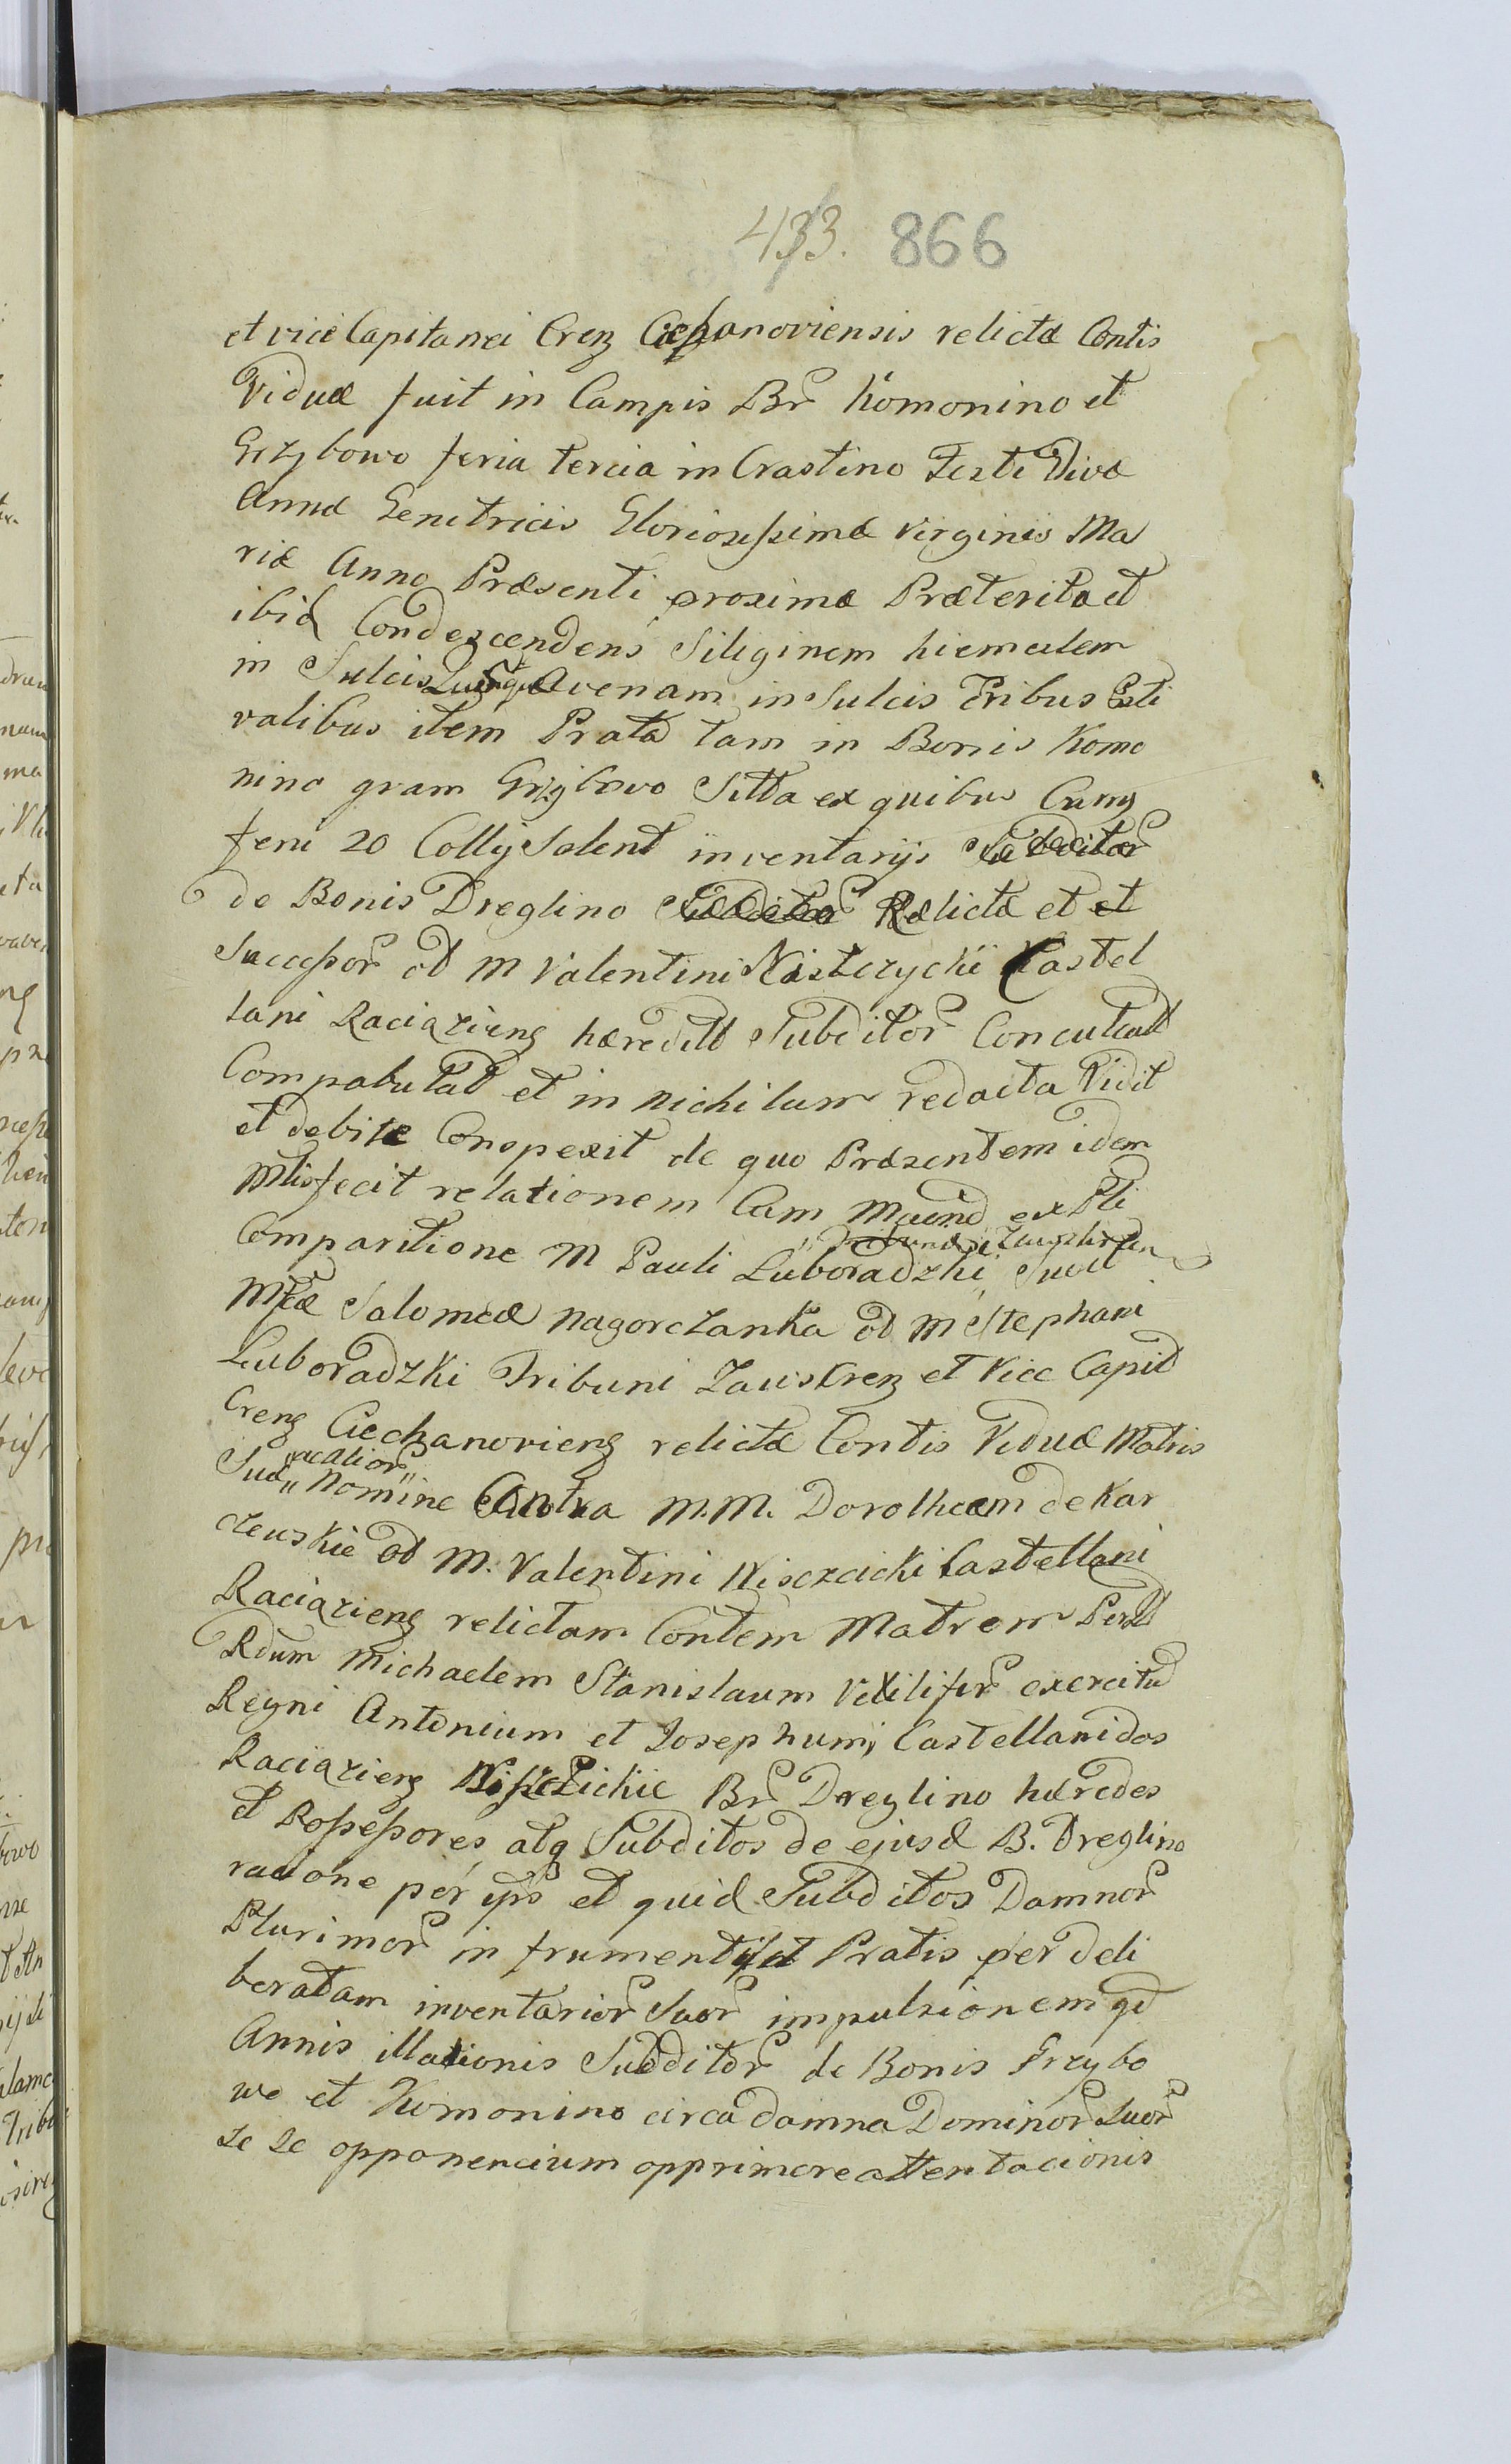 433. 866
et vice Capitanei Crenz Ciechanoviensis relictæ Contis
Viduæ fuit in Campis Br Komonino et
Grzybowo feria tercia in Crastino Festi Divæ
Annæ Genitricis Gloriosissimæ Virginis Ma
riæ Anno Præsenti proxime Præterita et
ibid Condescendens Siliginem hiemalem
in Sulcis Quinque Avenam in Sulcis Tribus Esti
valibus item Prata tam in Bonis Komo
nino quam Grzybowo Sitta ex quibus Cumy
feni 20 Colligi Solent inventarijs
de Bonis Dreglino Relictæ et et
Successor ol M Valentini Niszczyckii Kastel
lani Raciązieng hæredit Subditor Conculcat
Compabulat et in nichilum redacta Vidit
et debite Conspexit de quo Præsentem idem
Mlis fecit relationem Cam Maeind ex Pti
Comparitione M Pauli Luboradzki,, Suoet
Mfcæ Salomeæ Nagorczanka ol M Stephani
Luboradzki Tribuni Zauskrenz et Vice Capit
Creng Ciechanovieng relictæ Contis Viduæ Matris
Suæ,, ,, Nomine Contra M.M. Dorotheam de Kar
czeuskie ol M. Valentini Nisczcicki Castellani
Raciązieng relictam Contem Matrem Perill
Rdum Michaelem Stanislaum Vexilifer exercitu
Regni Antonium et Josephum Castellanidos
Raciązieng Nisczickie Br Dreglino hæredes
et Possessores atq Subditos de ejusd B. Dreglino
racione per ips et quid Subditos Damnor
Plurimor in frumentis et Pratis per deli
beratam inventarior Suor impulsionem qd
Annis illationis Subditor de Bonis Grzybo
wo et Komonino circa damna Dominor Suor
se se opponencium opprimere attentacionis